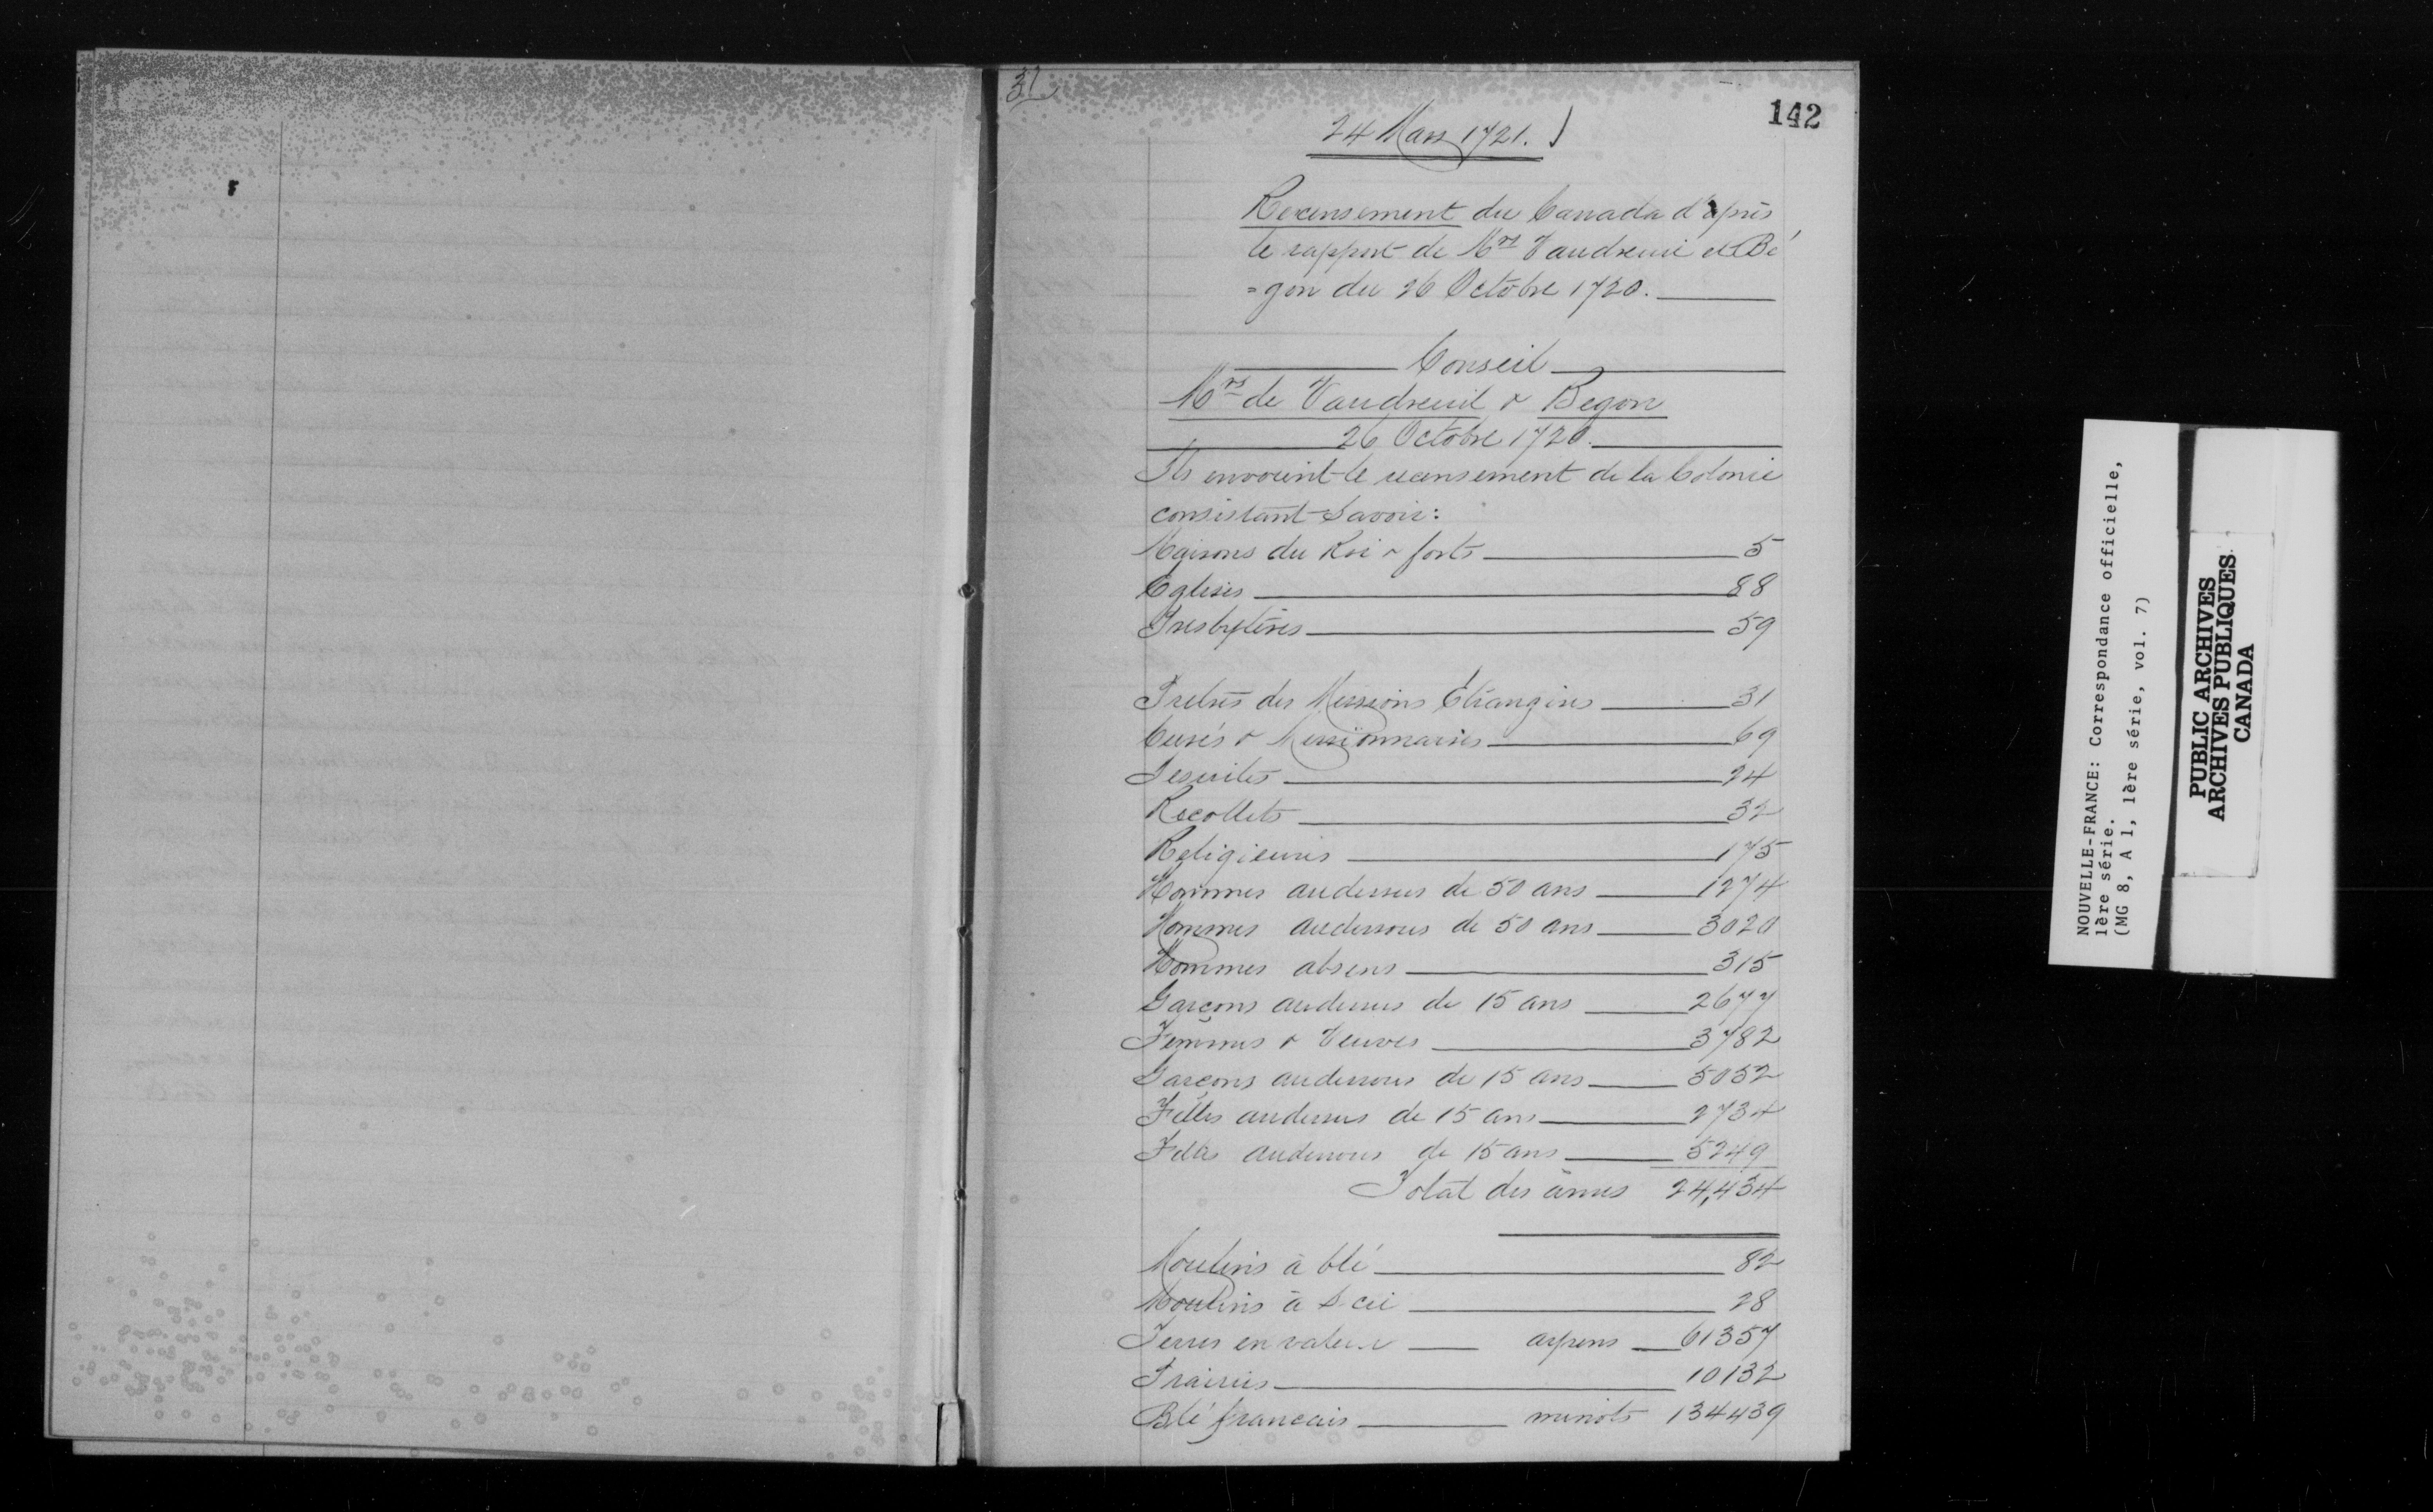 31
142
24 Mars 1721.
Recensement du Canada d'après
le rapport de Mrs Vaudreuil et Bé
=gon du 26 Octobre 1720.
Conseil
Mrs de Vaudreuil & Begon
26 Octobre 1720.
Ils envoient le recensement de la Colonie
consistant Savoir:
Maisons du Roi & forts 5
Eglises 88
Presbytères 59
Prêtres des Missions Etrangères 31
Curés & Missionnaires 69
Jesuites 24
Recollets 32
Religieuses 175
Hommes audessus de 50 ans 1274
Hommes audessous de 50 ans 3020
Hommes absens 315
Garçons audessus de 15 ans 2677
Femmes & Veuves 3782
Garçons audessous de 15 ans 5052
Filles audessus de 15 ans 2734
Filles audessous de 15 ans 5249
Total des âmes 24,434
Moulins à blé 82
Moulins à Scie 28
Terres en valeur arpens 61357
Prairies 10132
Blé francais minots 134439
NOUVELLE-FRANCE: Correspondance officielle,
1ère série.
(MG 8, A 1, 1ère série, vol. 7)
PUBLIC ARCHIVES
ARCHIVES PUBLIQUES
CANADA